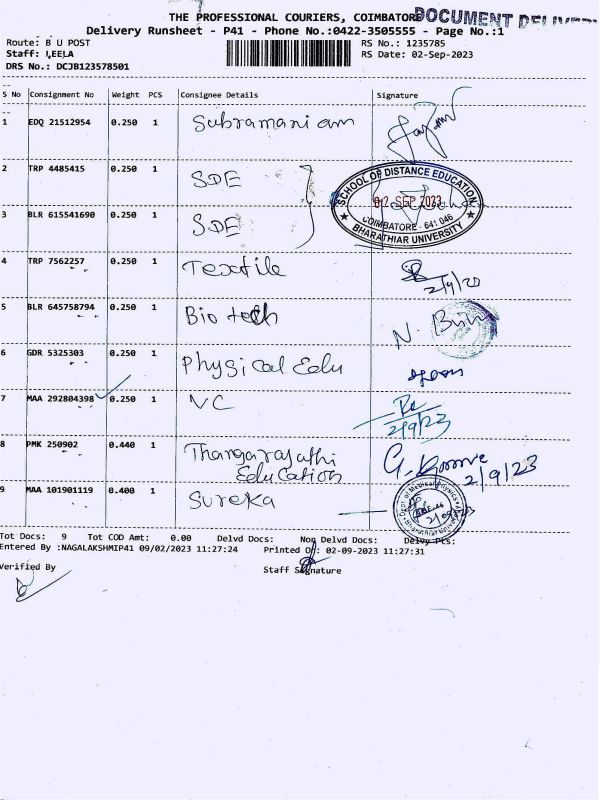 THE PROFESSIONAL COURIERS, COIMBATORE
DOCUMENT
Delivery Runsheet - P41 - Phone No.:0422-3505555 - Page No.:1
Route: B U POST
RS No.: 1235785
Staff: LEELA
RS Date: 02-Sep-2023
DRS No.: DCJB123578501
S No Consignment No Weight PCS Consignee Details Signature
1 EDQ 21512954 0.250 1 Subramaniam
2 TRP 4485415 0.250 1 SDE
SCHOOL OF DISTANCE EDUCATION
02 SEP 2023
COIMBATORE - 641 046
BHARATHIAR UNIVERSITY
3 BLR 615541690 0.250 1 SDE
4 TRP 7562257 0.250 1 Textile
2/9/23
5 BLR 645758794 0.250 1 Bio tech
N.
6 GDR 5325303 0.250 1 Physical Edu
7 MAA 292804398 0.250 1 VC
2/9/23
8 PMK 250902 0.440 1 Thangarajathi
Education
G. 2/9/23
9 MAA 101901119 0.400 1 Sureka
Dept. of Medical Physics
Tot Docs: 9 Tot COD Amt: 0.00 Delvd Docs: Non Delvd Docs: Delvy Pts:
Entered By :NAGALAKSHMIP41 09/02/2023 11:27:24 Printed On: 02-09-2023 11:27:31
Verified By
Staff Signature